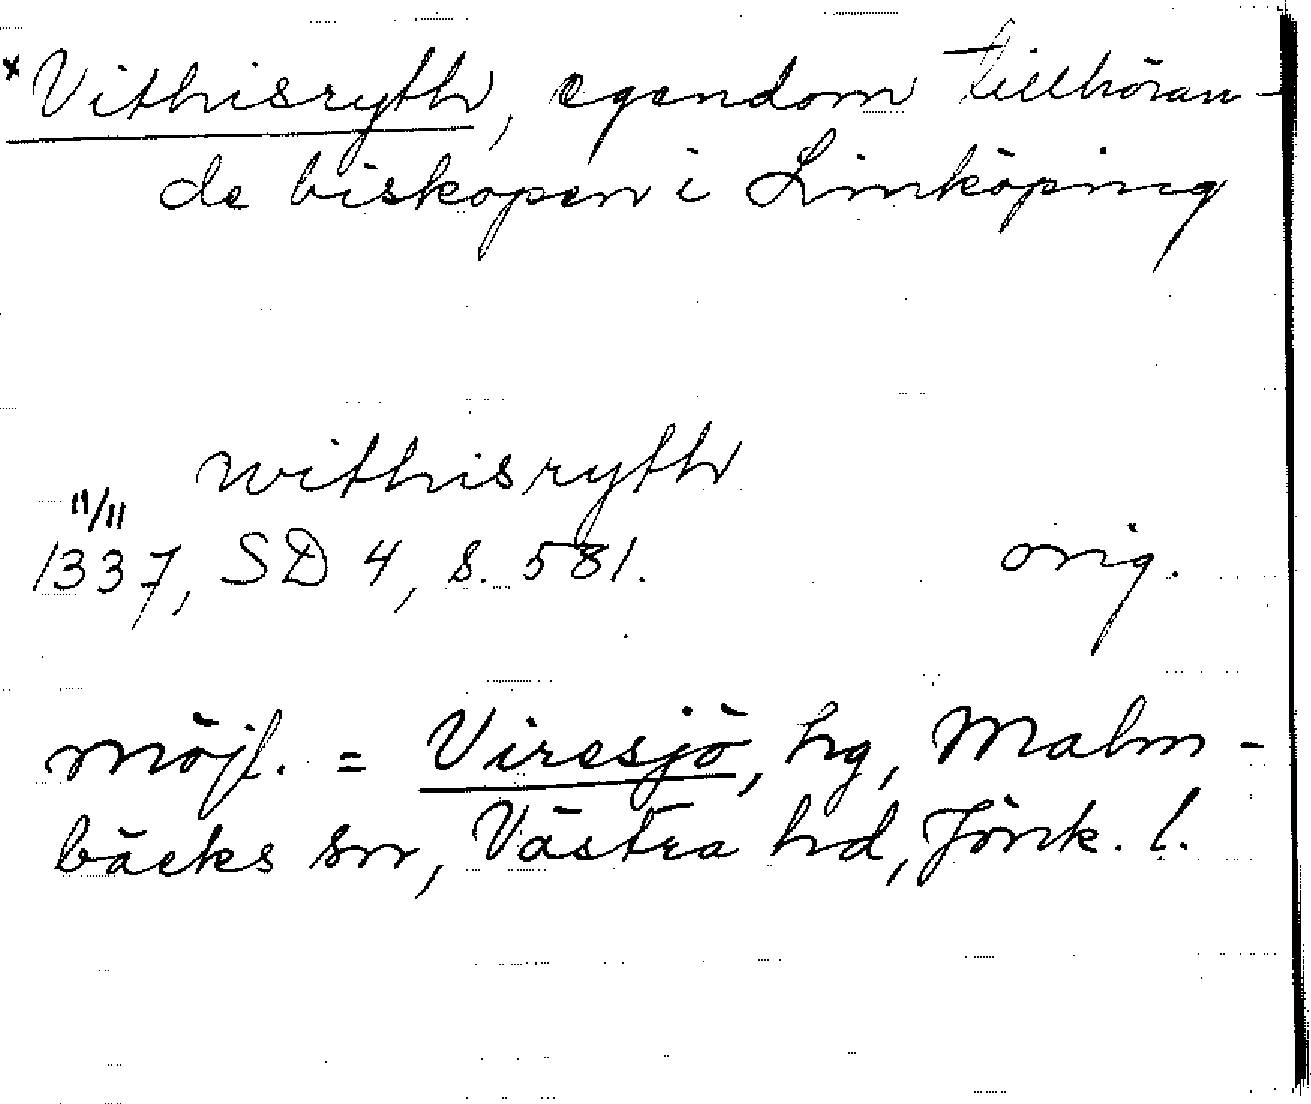 *Vithisryth, egendom tillhöran-
de biskopen i Linköping
withisryth
11/11
1337, SD 4, s. 581. orig.
möjl. = Viresjö, hg, Malm-
bäcks sn, Västra hd, Jönk. l.